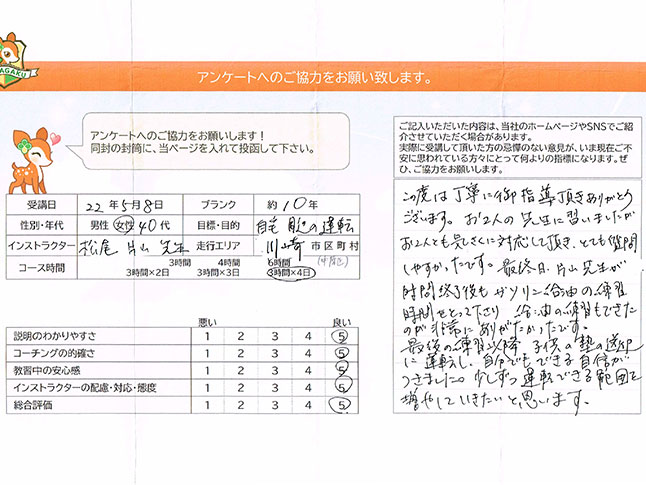 AGAKU
アンケートへのご協力をお願い致します。
アンケートへのご協力をお願いします！
同封の封筒に、当ページを入れて投函して下さい。
受講日 22年5月8日 ブランク 約10年
性別・年代 男性 女性 40代 目標・目的 自宅 周辺の運転
インストラクター 松尾 片山 先生 走行エリア 川崎 市区町村
コース時間 3時間 4時間 6時間 (中原区)
3時間×2日 3時間×3日 3時間×4日
悪い 良い
説明のわかりやすさ 1 2 3 4 5
コーチングの的確さ 1 2 3 4 5
教習中の安心感 1 2 3 4 5
インストラクターの配慮・対応・態度 1 2 3 4 5
総合評価 1 2 3 4 5
ご記入いただいた内容は、当社のホームページやSNSでご紹
介させていただく場合があります。
実際に受講して頂いた方の忌憚のない意見が、いま現在ご不
安に思われている方々にとって何よりの指標になります。ぜ
ひ、ご協力をお願いします。
この度は丁寧に御指導頂きありがとう
ございます。お2人の先生に習いましたが
お2人とも気さくに対応して頂き、とても質問
しやすかったです。最終日、片山先生が
時間終了後も ガソリン給油の練習
時間をとって下さり 給油の練習もできた
のが非常にありがたかったです。
最後の練習以降 子供の塾の送迎
に運転し、自分でもできる自信が
つきました。少しずつ運転できる範囲を
増やしていきたいと思います。